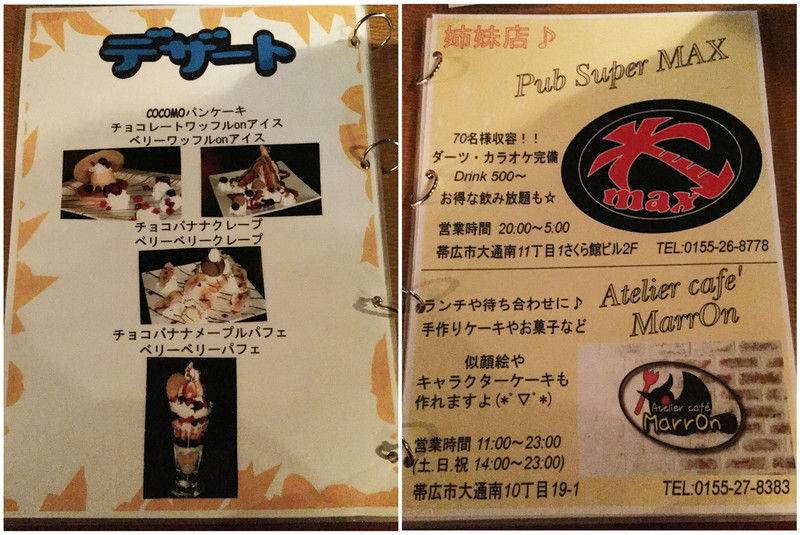 デザート
COCOMOパンケーキ
チョコレートワッフルonアイス
ベリーワッフルonアイス
チョコバナナクレープ
ベリーベリークレープ
チョコバナナメープルパフェ
ベリーベリーパフェ
姉妹店♪
Pub Super MAX
70名様収容！！
ダーツ・カラオケ完備
Drink 500～
お得な飲み放題も☆
max
営業時間 20:00～5:00
帯広市大通南11丁目1さくら館ビル2F TEL:0155-26-8778
ランチや待ち合わせに♪
手作りケーキやお菓子など
Atelier cafe'
MarrOn
似顔絵や
キャラクターケーキも
作れますよ(*ﾟ▽ﾟ*)
Atelier café
MarrOn
営業時間 11:00～23:00
(土.日.祝 14:00～23:00)
帯広市大通南10丁目19-1 TEL:0155-27-8383